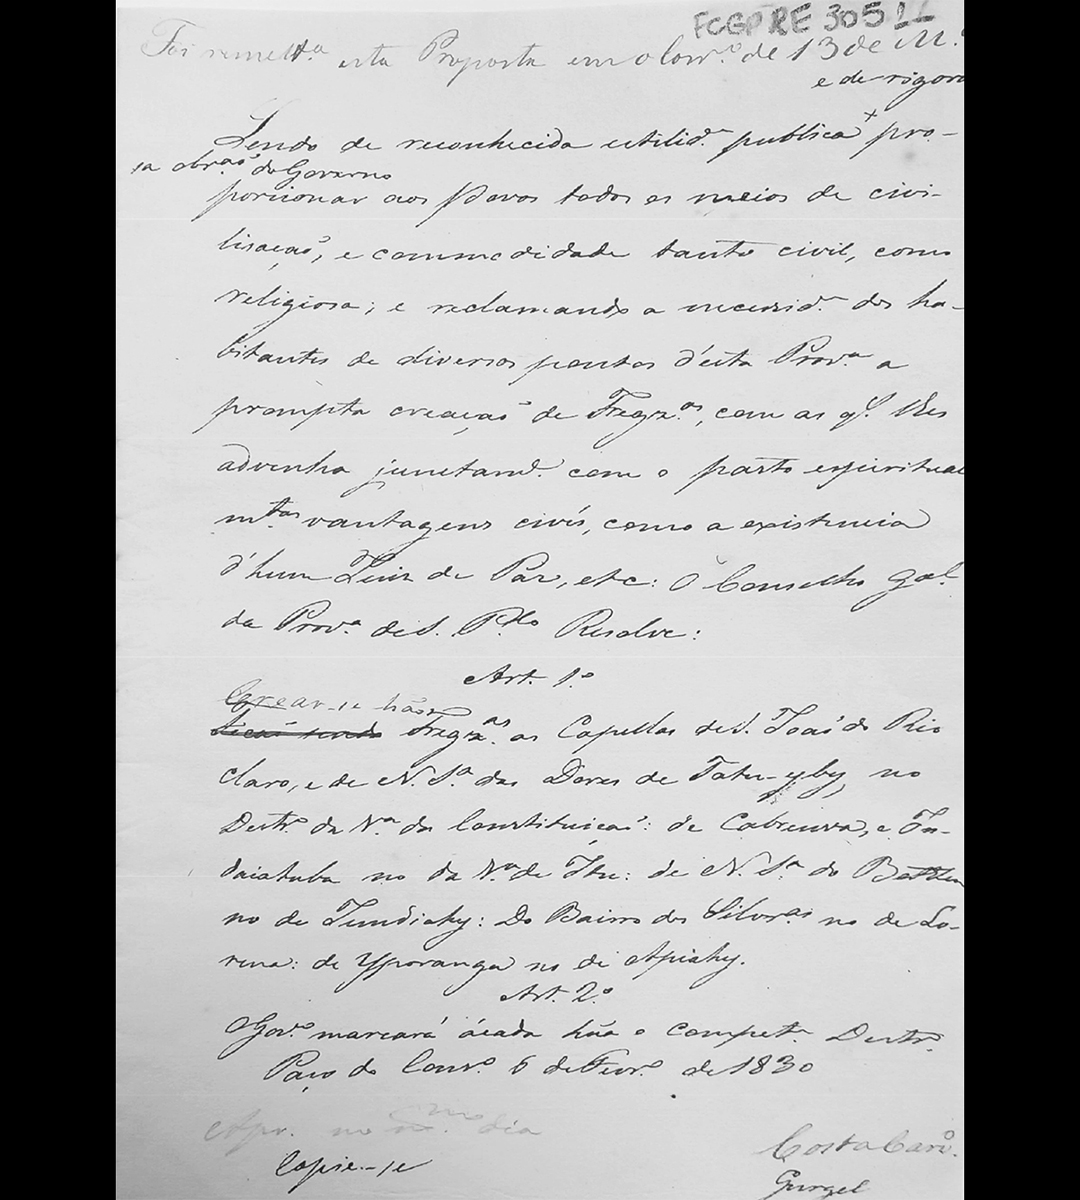 FCGP RE 305 11
Foi remett.da esta Proposta em o Cons.o de 13 de M.o
e de rigoro
Sendo de reconhecida utilid.e publica + pro-
sa obr.aõ do Governo
porcionar aos Povos todos os meios de civi-
lisaçaõ, e commodidade tanto civil, como
religiosa; e reclamando a necessid.e dos ha-
bitantes de diversos pontos d'esta Prov.a a
prompta creaçaõ de Fregz.as, com as q.s lhes
advenha junctam.e com o pasto espiritual
m.tas vantagens civís, como a existencia
d'hum Juiz de Paz, etc: O Conselho G.al
da Prov.a de S. P.lo Resolve:
Art. 1.o
Crear-se haõ
Ficaõ sendo Fregz.as as Capellas de S. Joaõ do Rio
Claro, e de N. S.a das Dores de Tatu-yby, no
Destr.o da V.a da Constituiçaõ: de Cabreuva, e In-
daiatuba no da V.a de Itu: de N. S.a do Bethlem
no de Jundiahy: Do Bairro dos Silvr.as no de Lo-
rena: de Yporanga no de Apiahy.
Art. 2.o
O Gov.o marcará á cada hũa o compet.e Destr.o
Paço do Cons.o 6 de Fevr.o de 1830
Apr. no m.mo dia
Copie-se
Costa Carv.o
Gurgel